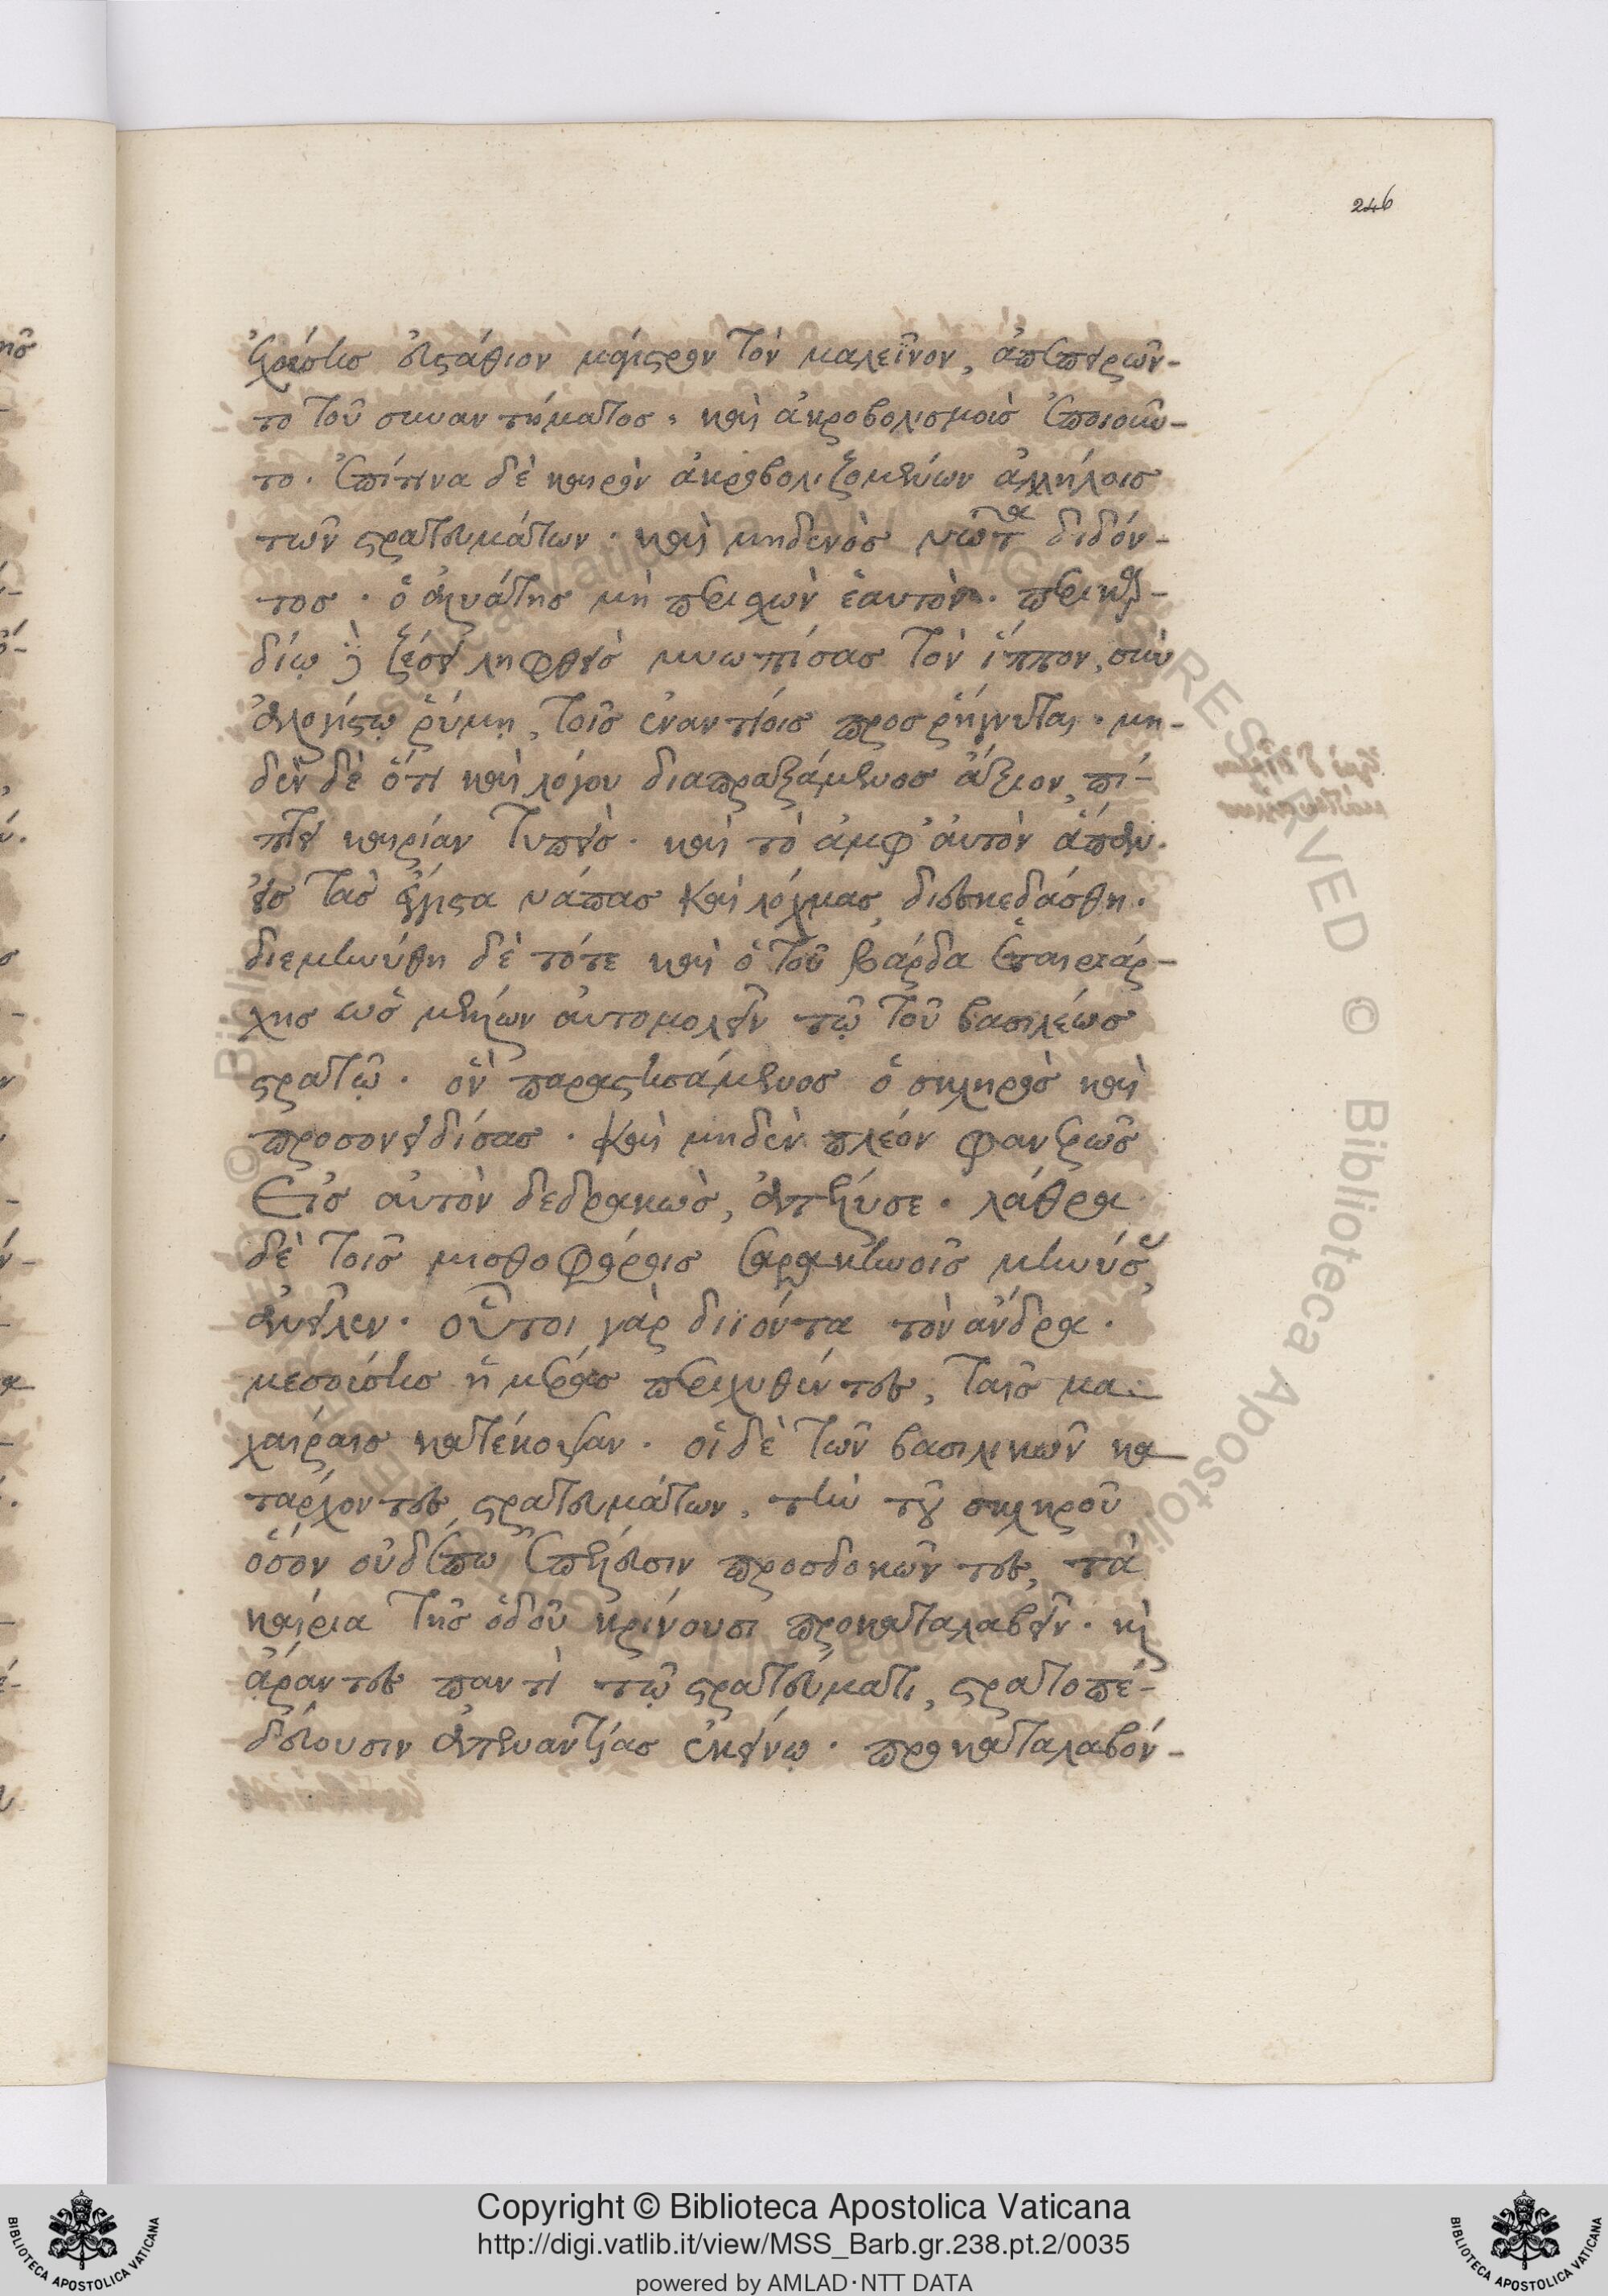 246
ἐχούσης εὐστάθιον μάγιστρον τὸν μαλεΐνον, ἀπεπειρῶν-
το τοῦ συναντήματος. καὶ ἀκροβολισμοὺς ἐποιοῦν-
το. ἐπί τινα δὲ καιρὸν ἀκροβολιζομένων ἀλλήλοις
τῶν στρατευμάτων. καὶ μηδενὸς νῶτα διδόν-
τος. ὁ
μὴ
ἑαυτὸν.
δίῳ
ληφθεὶς μυωπίσας τὸν ἵππον, σὺν
ἀλογίστῳ ῥύμῃ, τοῖς ἐναντίοις προσρήγνυται. μη-
δὲν δὲ ὅτι καὶ λόγου διαπραξάμενος ἄξιον, πί-
πτει καιρίαν τυπεὶς. καὶ τὸ ἀμφ' αὐτὸν ἅπαν
εἰς τὰς ἔγγιστα νάπας καὶ λόχμας, διεσκεδάσθη.
διεμηνύθη δὲ τότε καὶ ὁ τοῦ βάρδα ἑταιρειάρ-
χης ὡς μέλλων αὐτομολεῖν τῷ τοῦ βασιλέως
στρατῷ. ὃν παραστησάμενος ὁ σκληρὸς καὶ
προσονειδίσας. καὶ μηδὲν πλέον φανερῶς
εἰς αὐτὸν δεδρακὼς, ἀπέλυσε. λάθρα
δὲ τοῖς μισθοφόροις σαρακηνοῖς μηνύσας,
ἀνεῖλεν. οὗτοι γὰρ διϊόντα τὸν ἄνδρα.
μεσούσης ἡμέρας περιχυθέντες, ταῖς μα-
χαίραις κατέκοψαν. οἱ δὲ τῶν βασιλικῶν κα
τάρχοντες στρατευμάτων, τὴν τοῦ σκληροῦ
ὅσον οὐδέπω ἐπέλευσιν προσδοκῶντες, τὰ
καίρια τῆς ὁδοῦ κρίνουσι προκαταλαβεῖν. καὶ
ἄραντες παντὶ τῷ στρατεύματι, στρατοπε-
δεύουσιν ἀπεναντίας ἐκείνῳ. προκαταλαβόν-
Copyright © Biblioteca Apostolica Vaticana
http://digi.vatlib.it/view/MSS_Barb.gr.238.pt.2/0035
powered by AMLAD·NTT DATA
BIBLIOTECA APOSTOLICA VATICANA
BIBLIOTECA APOSTOLICA VATICANA